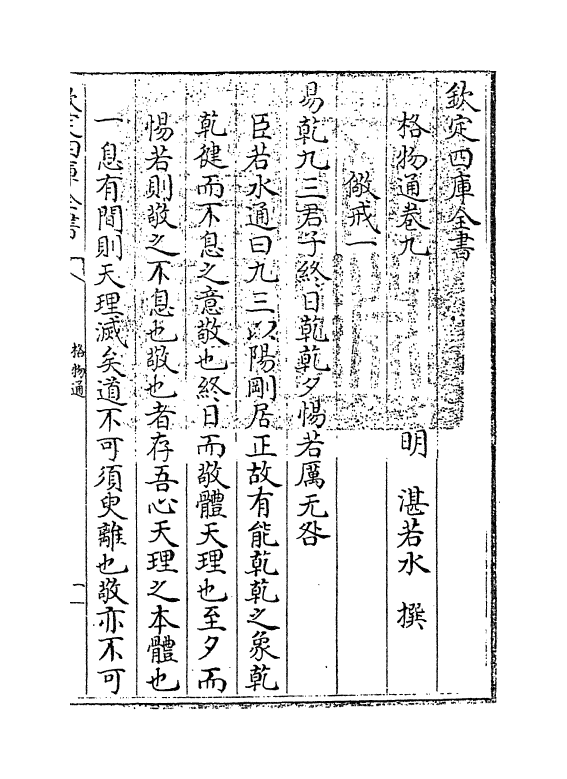 欽定四庫全書
格物通卷九
明 湛若水 撰
儆戒一
易乾九三君子終日乾乾夕惕若厲无咎
臣若水通曰九三以陽剛居正故有能乾乾之象乾
乾健而不息之意敬也終日而敬體天理也至夕而
惕若則敬之不息也敬也者存吾心天理之本體也
一息有間則天理滅矣道不可須臾離也敬亦不可
欽定四庫全書
格物通
一